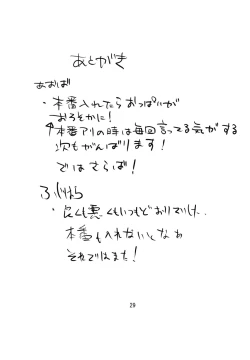 あとがき
あおば
・本番入れたらおっぱいが
おろそかに!
↑本番アリの時は毎回言ってる気がする
次もがんばります!
ではさらば!
・良くも悪くもいつもどおりでした。
本番も入れないとなぁ
それではまた!
29